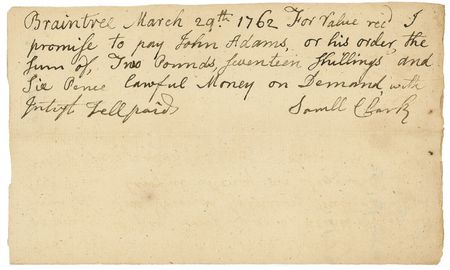 Braintree March 29.th 1762 For Value rec.d I
promise to pay John Adams, or his order, the
Sum of, Two Pounds, Seventeen Shillings, and
Six Pence Lawful Money on Demand, with
Intrst tell paid
Samll Clark